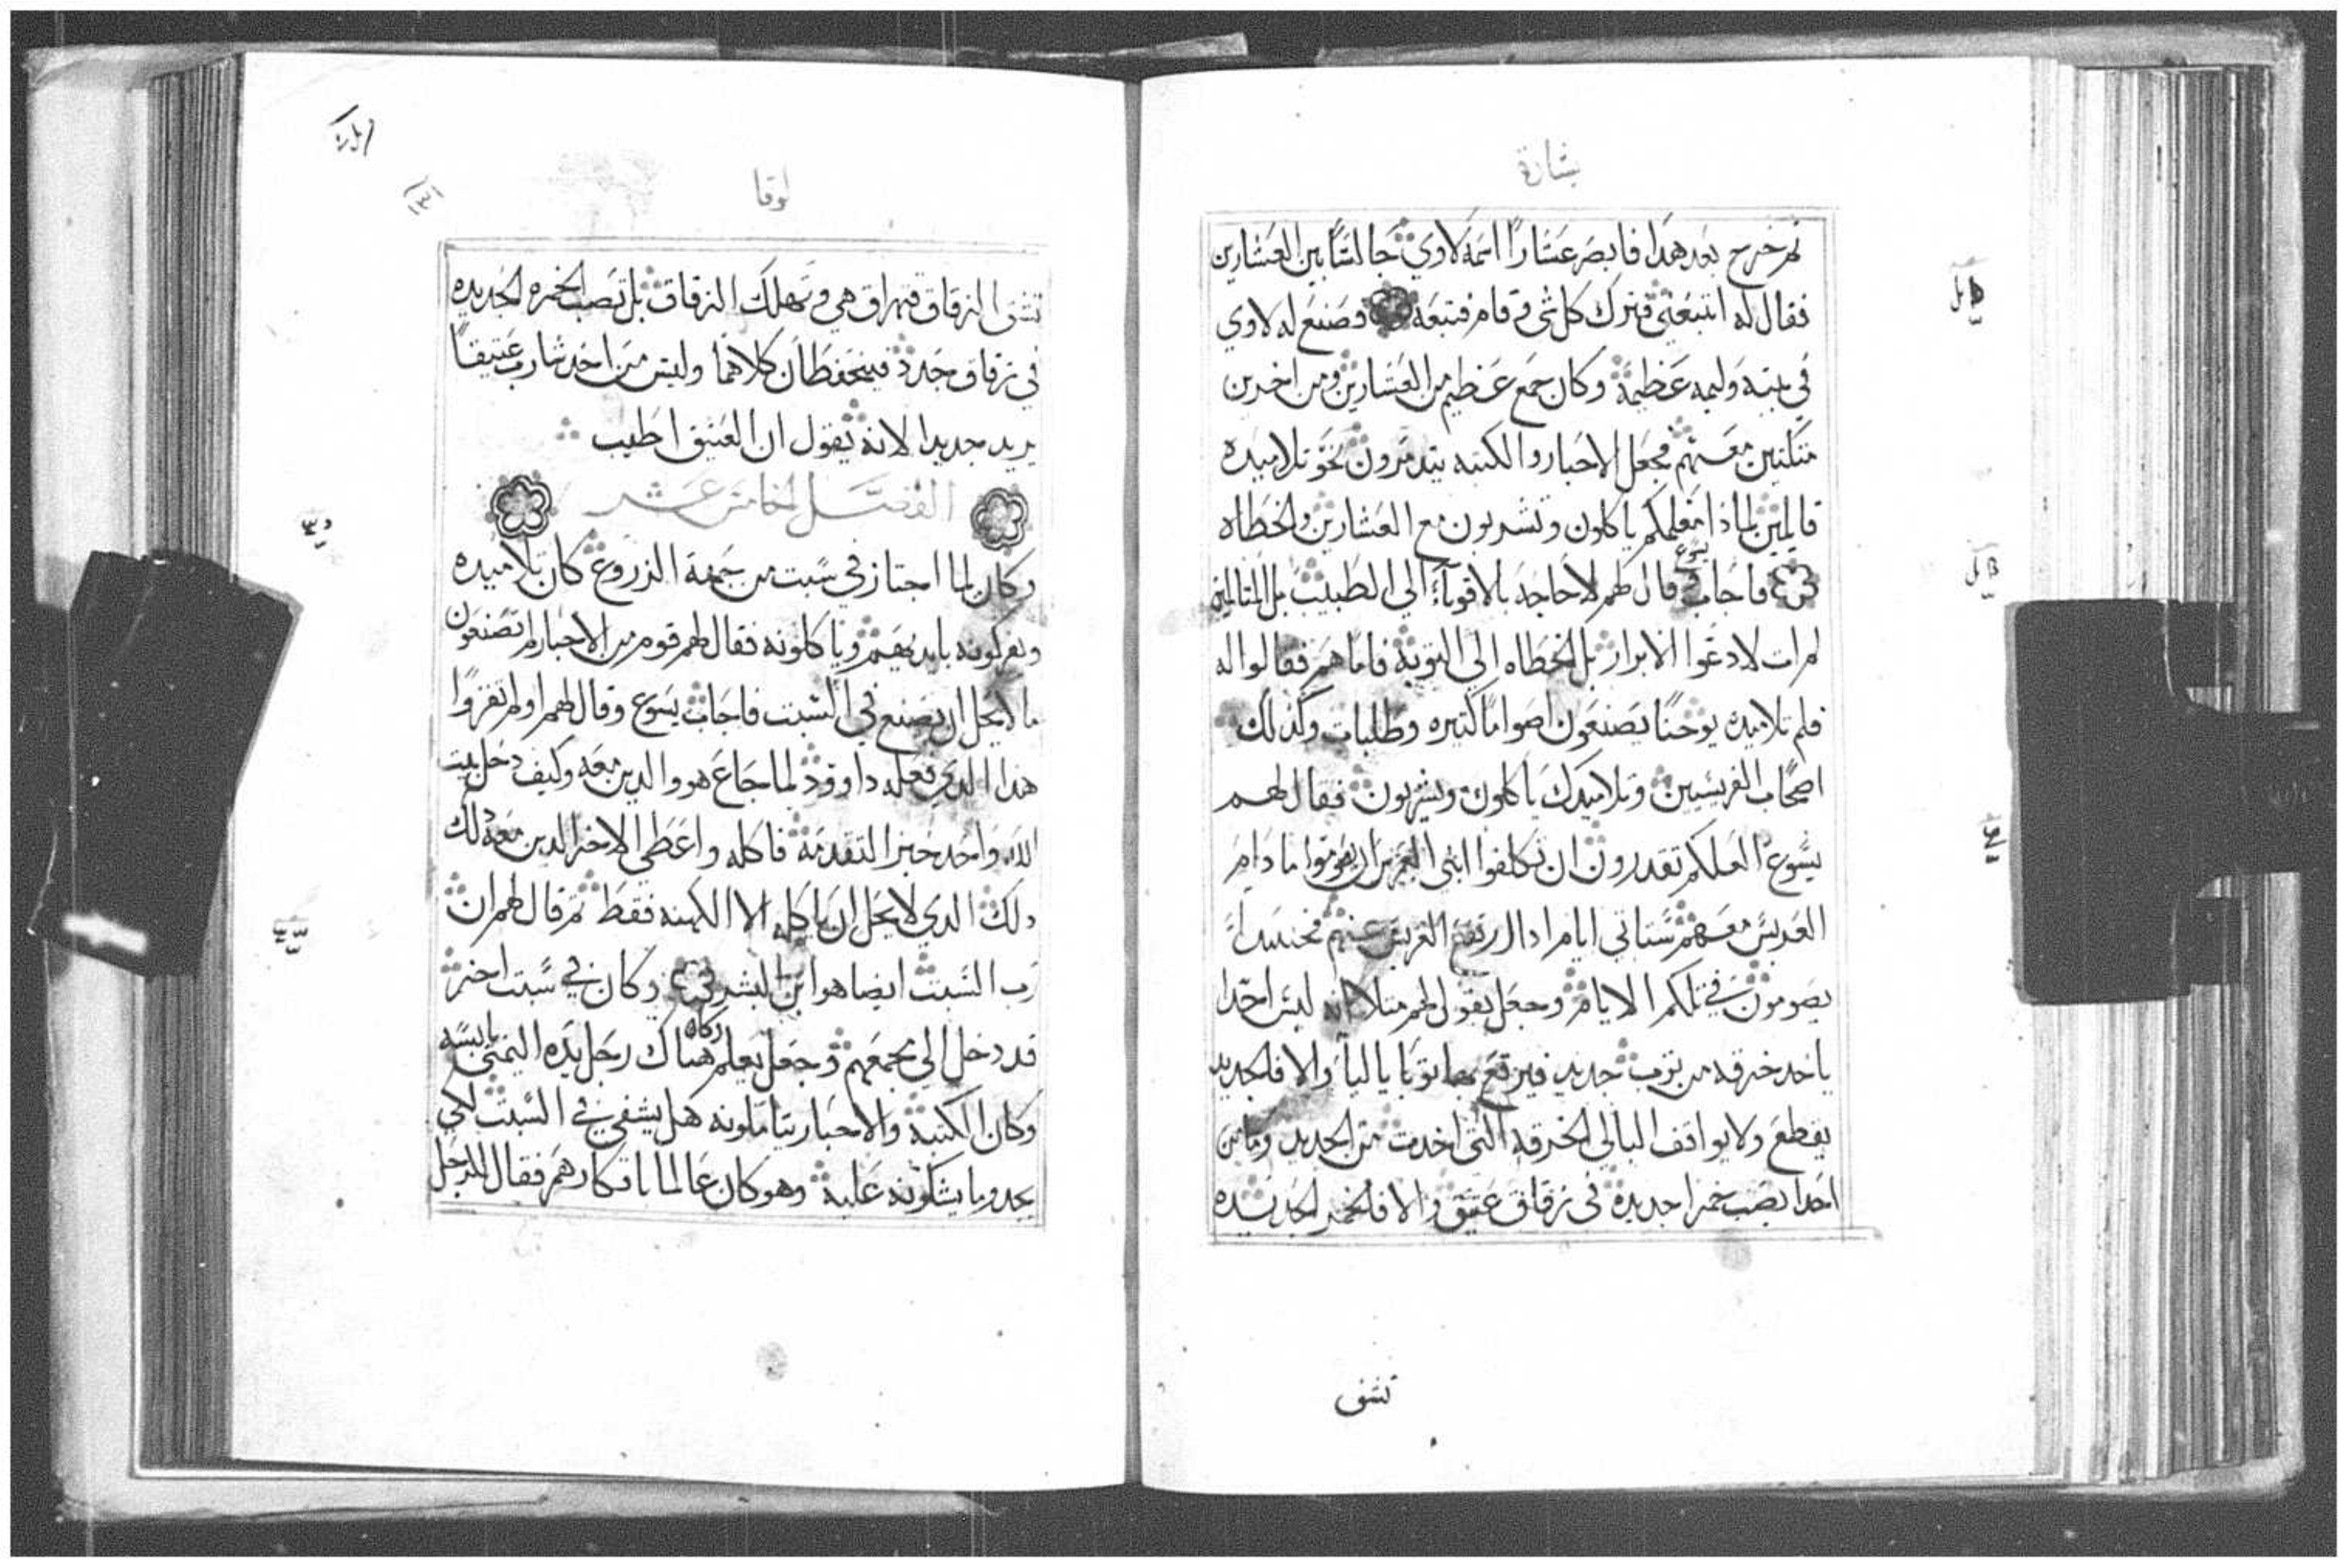 بشارة
ثم خرج بعد هذا فابصر عشارًا اسمه لاوي جالسًا بين العشارين
فقال له اتبعني فترك كل شي وقام فتبعه وصنع له لاوي
في بيته وليمه عظيمة وكان جمع عظيم من العشارين ومن اخرين
متكئين معهم فجعل الاحبار والكتبه يتدمرون نحو تلاميده
قايلين لماذا معلمكم ياكلون وتشربون مع العشارين والخطاه
فاجاب يسوع وقال لهم لا حاجه بالاقوياء الي الطبيب بل المتالمين
لم ات لادعوا الابرار بل الخطاه الي التوبة فاما هم فقالوا له
فلم تلاميد يوحنا يصنعون اصوامًا كثيره وطلبات وكذلك
اصحاب الفريسيين وتلاميدك ياكلون ويشربون فقال لهم
يسوع العلكم تقدرون ان تكلفوا ابني العرس ان يصوموا ما دام
العريس معهم ستاتي ايام ادا ارتفع العريس عنهم فحينيدا
يصومون في تلكم الايام وجعل يقول لهم مثلا انه ليس احدا
ياخد خرقه من توب جديد فيرقع بها توبا باليا والا فالجديد
يقطع ولا يوافف البالي الخرقه التي اخدت من الجديد وما من
احدا يصب خمرا جديدة في زقاق عتيق والا فالخمر الجديده
تنشق
لوقا
تنشق الزقاق فتهراق هي وتهلك الزقاق بل تصب الخمره الجديده
في زقاق جدد فيتحفظان كلاهما وليس من احد شارب عتيقًا
يريد جديدا لانه يقول ان العتيق اطيب
الفصل الخامس عشر
وكان لما اجتاز في سبت من جهة الزروع كان تلاميده
ويفركونه بايديهم وياكلونه فقال لهم قوم من الاحبار لم تصنعون
ما لا يحل ان يصنع في السبت فاجاب يسوع وقال لهم اولم تقروا
هذا الدي فعله داوود لما جاع هو والدين معه وكيف دخل بيت
الله واخد خبز التقدمة فاكله واعطي الاخر الدين معه دلك
دلك الدي لا يحل ان ياكله الا الكهنه فقط ثم قال لهم ان
رب السبت ايضا هو ابن البشر وكان في سبت اخر
قد دخل الي مجمعهم وجعل يعلم وكان هناك رجل يده اليمني يابسه
وكان الكتبة والاحبار يتاملونه هل يشفي في السبت لكي
يجدوا ما يشكونه عليه وهو كان عالما بافكارهم فقال للرجل